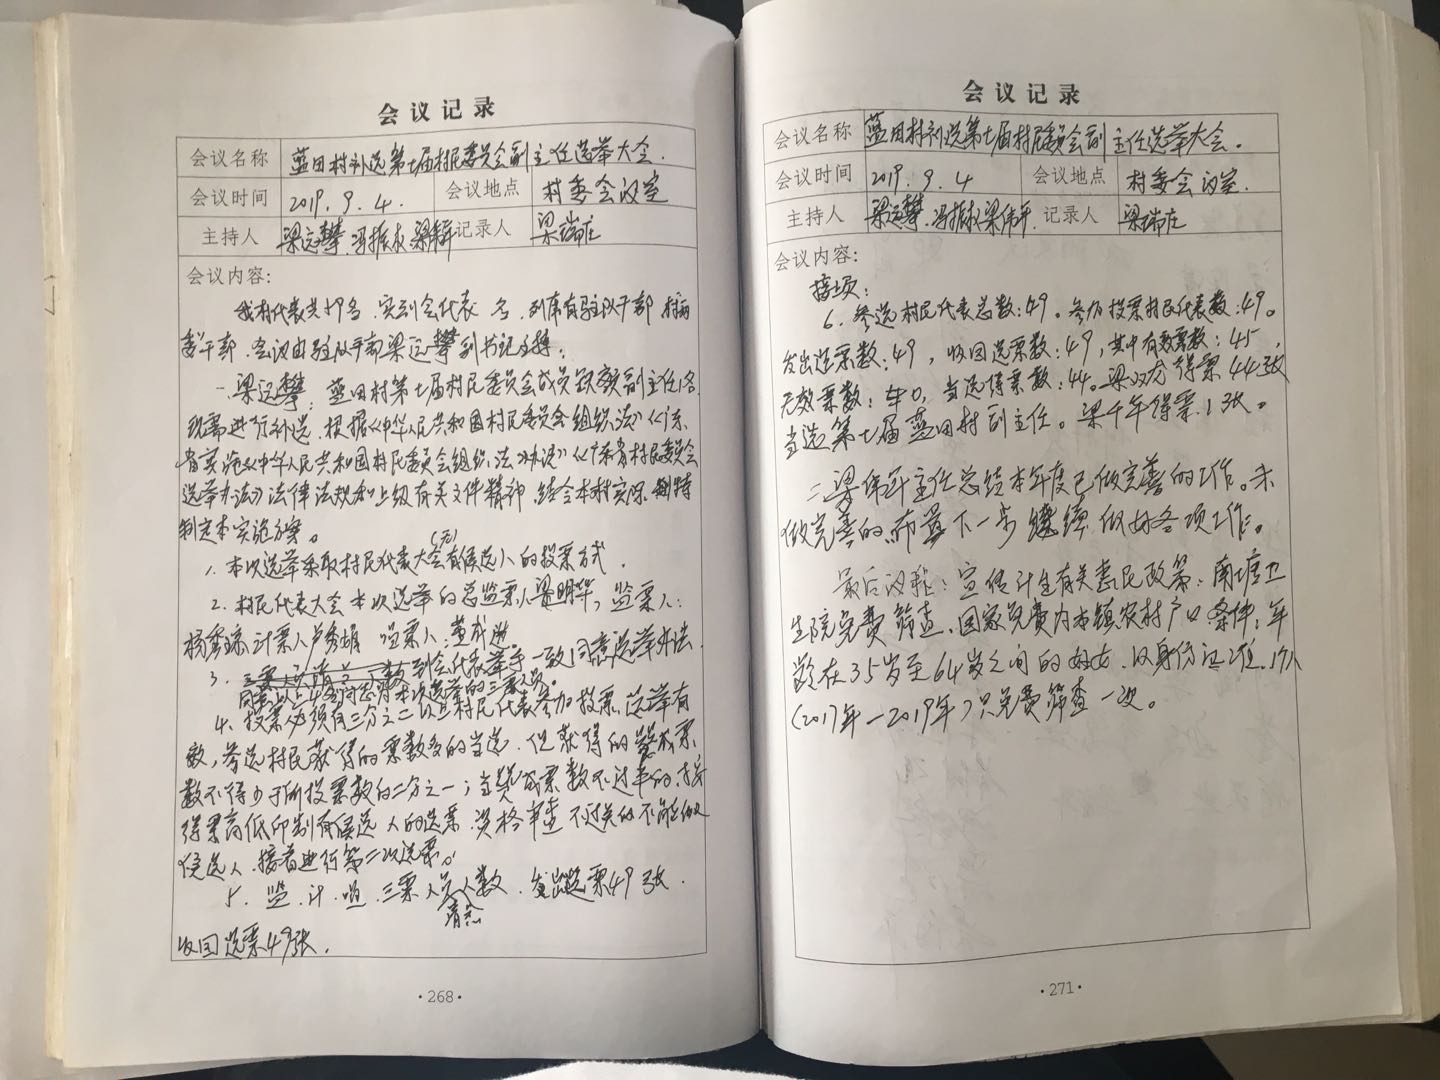 会议记录
会议名称 蓝田村补选第七届村民委员会副主任选举大会.
会议时间 2019.9.4. 会议地点 村委会议室
主持人 梁远攀.冯振权 记录人 梁瑞庄
会议内容:
我村代表共49名,实到会代表 名,列席有驻队干部,村两
委干部,会议由驻队干部梁远攀副书记主持:
一.梁远攀:蓝田村第七届村民委员会成员缺额副主任1名
现需进行补选,根据《中华人民共和国村民委员会组织法》《广东
省实施《中华人民共和国村民委员会组织法》办法》《广东省村民委员会
选举办法》法律法规和上级有关文件精神,结合本村实际,特
制定本实施方案。
1.本次选举采取村民代表大会(无)有候选人的投票方式.
2.村民代表大会本次选举的总监票人梁明华,监票人:
计票人卢秀娟 唱票人
3. 到会代表举手一致同意选举办法.
4.投票必须有三分之二以上村民代表参加投票,选举有
效,参选村民获得的票数多的当选,但获得的赞成票
数不得少于所投票数的二分之一;当赞成票数不过半的,按
得票高低印制有候选人的选票,资格审查不过关的不能做
候选人,接着进行第二次选票。
5.监.计.唱.三票人员清点人数.发出选票49张.
收回选票49张.
·268·
会议记录
会议名称 蓝田村补选第七届村民委员会副主任选举大会.
会议时间 2019.9.4 会议地点 村委会议室.
主持人 梁远攀.冯振权梁伟年. 记录人 梁瑞庄
会议内容:
接上页:
6.参选村民代表总数:49。参加投票村民代表数:49。
发出选票数:49,收回选票数:49,其中有效票数:45,
无效票数: 0,当选得票数:44。梁双龙得票44张
当选第七届蓝田村副主任。梁千年得票1张。
二.梁伟年主任总结本年度已做完善的工作。未
做完善的,布置下一步继续做好各项工作。
最后议程:宣传计生有关惠民政策:南塘卫
生院免费筛查,国家免费为本镇农村户口,条件:年
龄在35岁至64岁之间的妇女,以身份证为准,1个人
(2017年—2019年)只免费筛查一次。
·271·